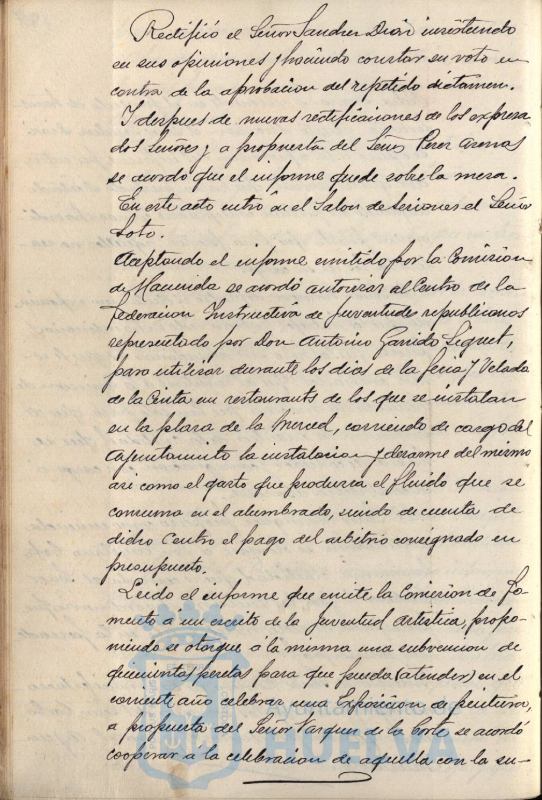 Rectificó el Señor Sanchez Diaz insistiendo
en sus opiniones y haciendo constar su voto en
contra de la aprobacion del repetido dictamen.
Y despues de nuevas rectificaciones de los expresa
dos Señores y a propuesta del Señor Perez Arenas
se acordó que el informe quede sobre la mesa.
En este acto entró en el Salon de sesiones el Señor
Soto.
Aceptando el informe emitido por la Comision
de Hacienda se acordó autorizar al Centro de la
Federacion Instructiva de Juventudes republicanas
representado por Don Antonio Garrido Seguet,
para utilizar durante los dias de la feria y Velada
de la Cinta un restaurant de los que se instalan
en la plaza de la Merced, corriendo de cargo del
Ayuntamiento la instalacion y desarme del mismo
asi como el gasto que produzca el fluido que se
consuma en el alumbrado, siendo de cuenta de
dicho Centro el pago del arbitrio consignado en
presupuesto.
Leido el informe que emite la Comision de Fo-
mento á un escrito de la Juventud Artistica, propo-
niendo se otorgue á la misma una subvencion de
quinientas pesetas para que pueda (atender) en el
corriente año celebrar una Exposicion de pinturas,
a propuesta del Señor Vazquez de la Corte se acordó
cooperar a la celebracion de aquella con la su-
Ayuntamiento de
HUELVA